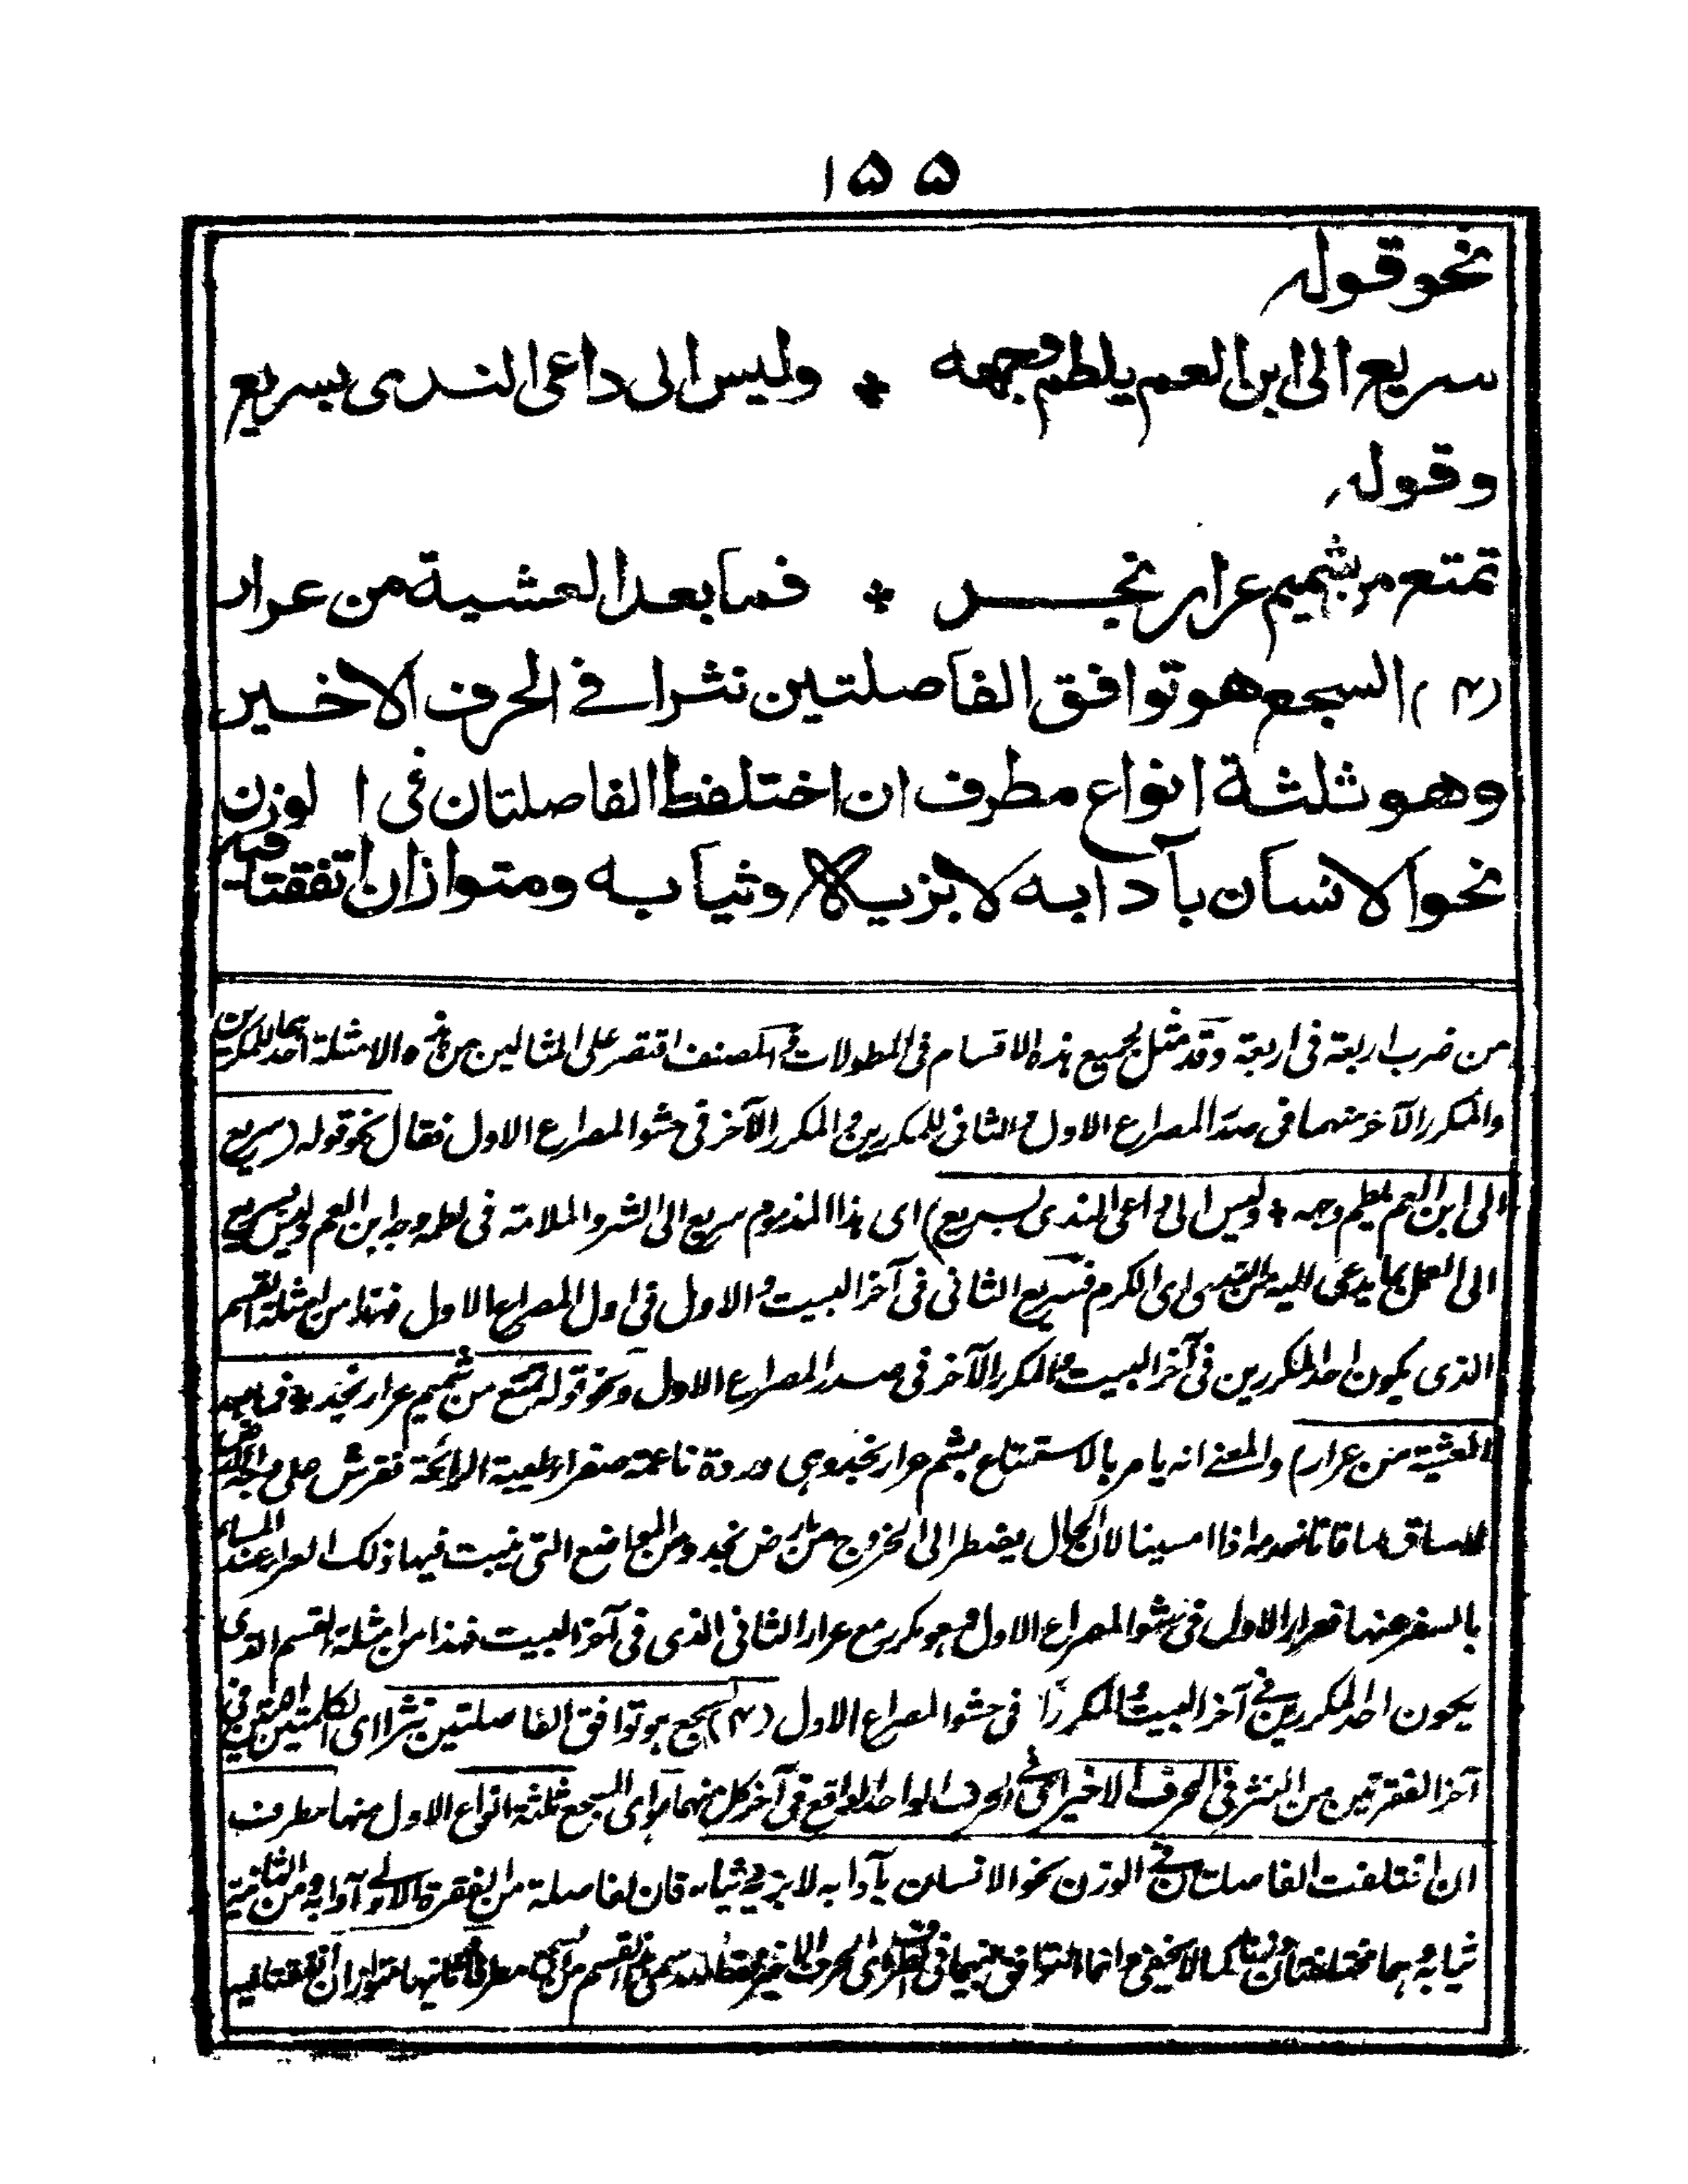 ۱۵۵
نحو قوله
سريع الى ابن العم يلطم وجهه * وليس الى داعى الندى بسريع
وقوله
تمتع من شميم عرار نجد * فما بعد العشية من عرار
(۴) السجع هو توافق الفاصلتين نثرا فى الحرف الاخير
وهو ثلثة انواع مطرف ان اختلفت الفاصلتان فى الوزن
نحو الانسان بآدابه لا بزيه وثيابه ومتواز ان اتفقتا فيه
من ضرب اربعة فى اربعة وقد مثل لجميع هذه الاقسام فى المطولات والمصنف اقتصر على المثالين من هذه الامثلة احدهما للمكررين
والمكرر الآخر منهما فى صدر المصراع الاول والثانى للمكررين والمكرر الآخر فى حشو المصراع الاول فقال نحو قوله (سريع
الى ابن العم يلطم وجهه * وليس الى داعى الندى بسريع) اى هذا المذموم سريع الى الشر والملامة فى لطمه وجه ابن العم وليس بسريع
الى العمل بما يدعى اليه من الندى اى الكرم فسريع الثانى فى آخر البيت والاول فى اول المصراع الاول فهذا من امثلة القسم
الذى يكون احد المكررين فى آخر البيت والمكرر الآخر فى صدر المصراع الاول ونحو قوله تمتع من شميم عرار نجد * فما بعد
العشية من عرار) والمعنى انه يامر بالاستمتاع بشم عرار نجد وهى وردة ناعمة صفراء طيبة الرائحة تفرش على وجه الارض
لا ساق لها فانا نعدمه اذا امسينا لان الحال يضطر الى الخروج من ارض نجد ومن المواضع التى ينبت فيها ذلك العرار عند المساء
بالسفر عنها فعرار الاول فى حشو المصراع الاول وهو مكرر مع عرار الثانى الذى فى آخر البيت فهذا من امثلة القسم الذى
يكون احد المكررين فى آخر البيت والمكرر فى حشو المصراع الاول (۴) السجع هو توافق الفاصلتين نثرا اى الكلمتين اللتين فى
آخر الفقرتين من النثر فى الحرف الاخير اى فى الحرف الواحد الواقع فى آخر كل منهما وهو اى السجع ثلثة انواع الاول منها مطرف
ان اختلفت الفاصلتان فى الوزن نحو الانسان بآدابه لا بزيه وثيابه فان الفاصلة من الفقرة الاولى آدابه ومن الثانية
ثيابه وهما مختلفتان وزنا كما لا يخفى وانما التوافق بينهما فى الحرف الاخير فقط سمى هذا القسم من السجع مطرفا وثانيها متواز ان اتفقتا فيه